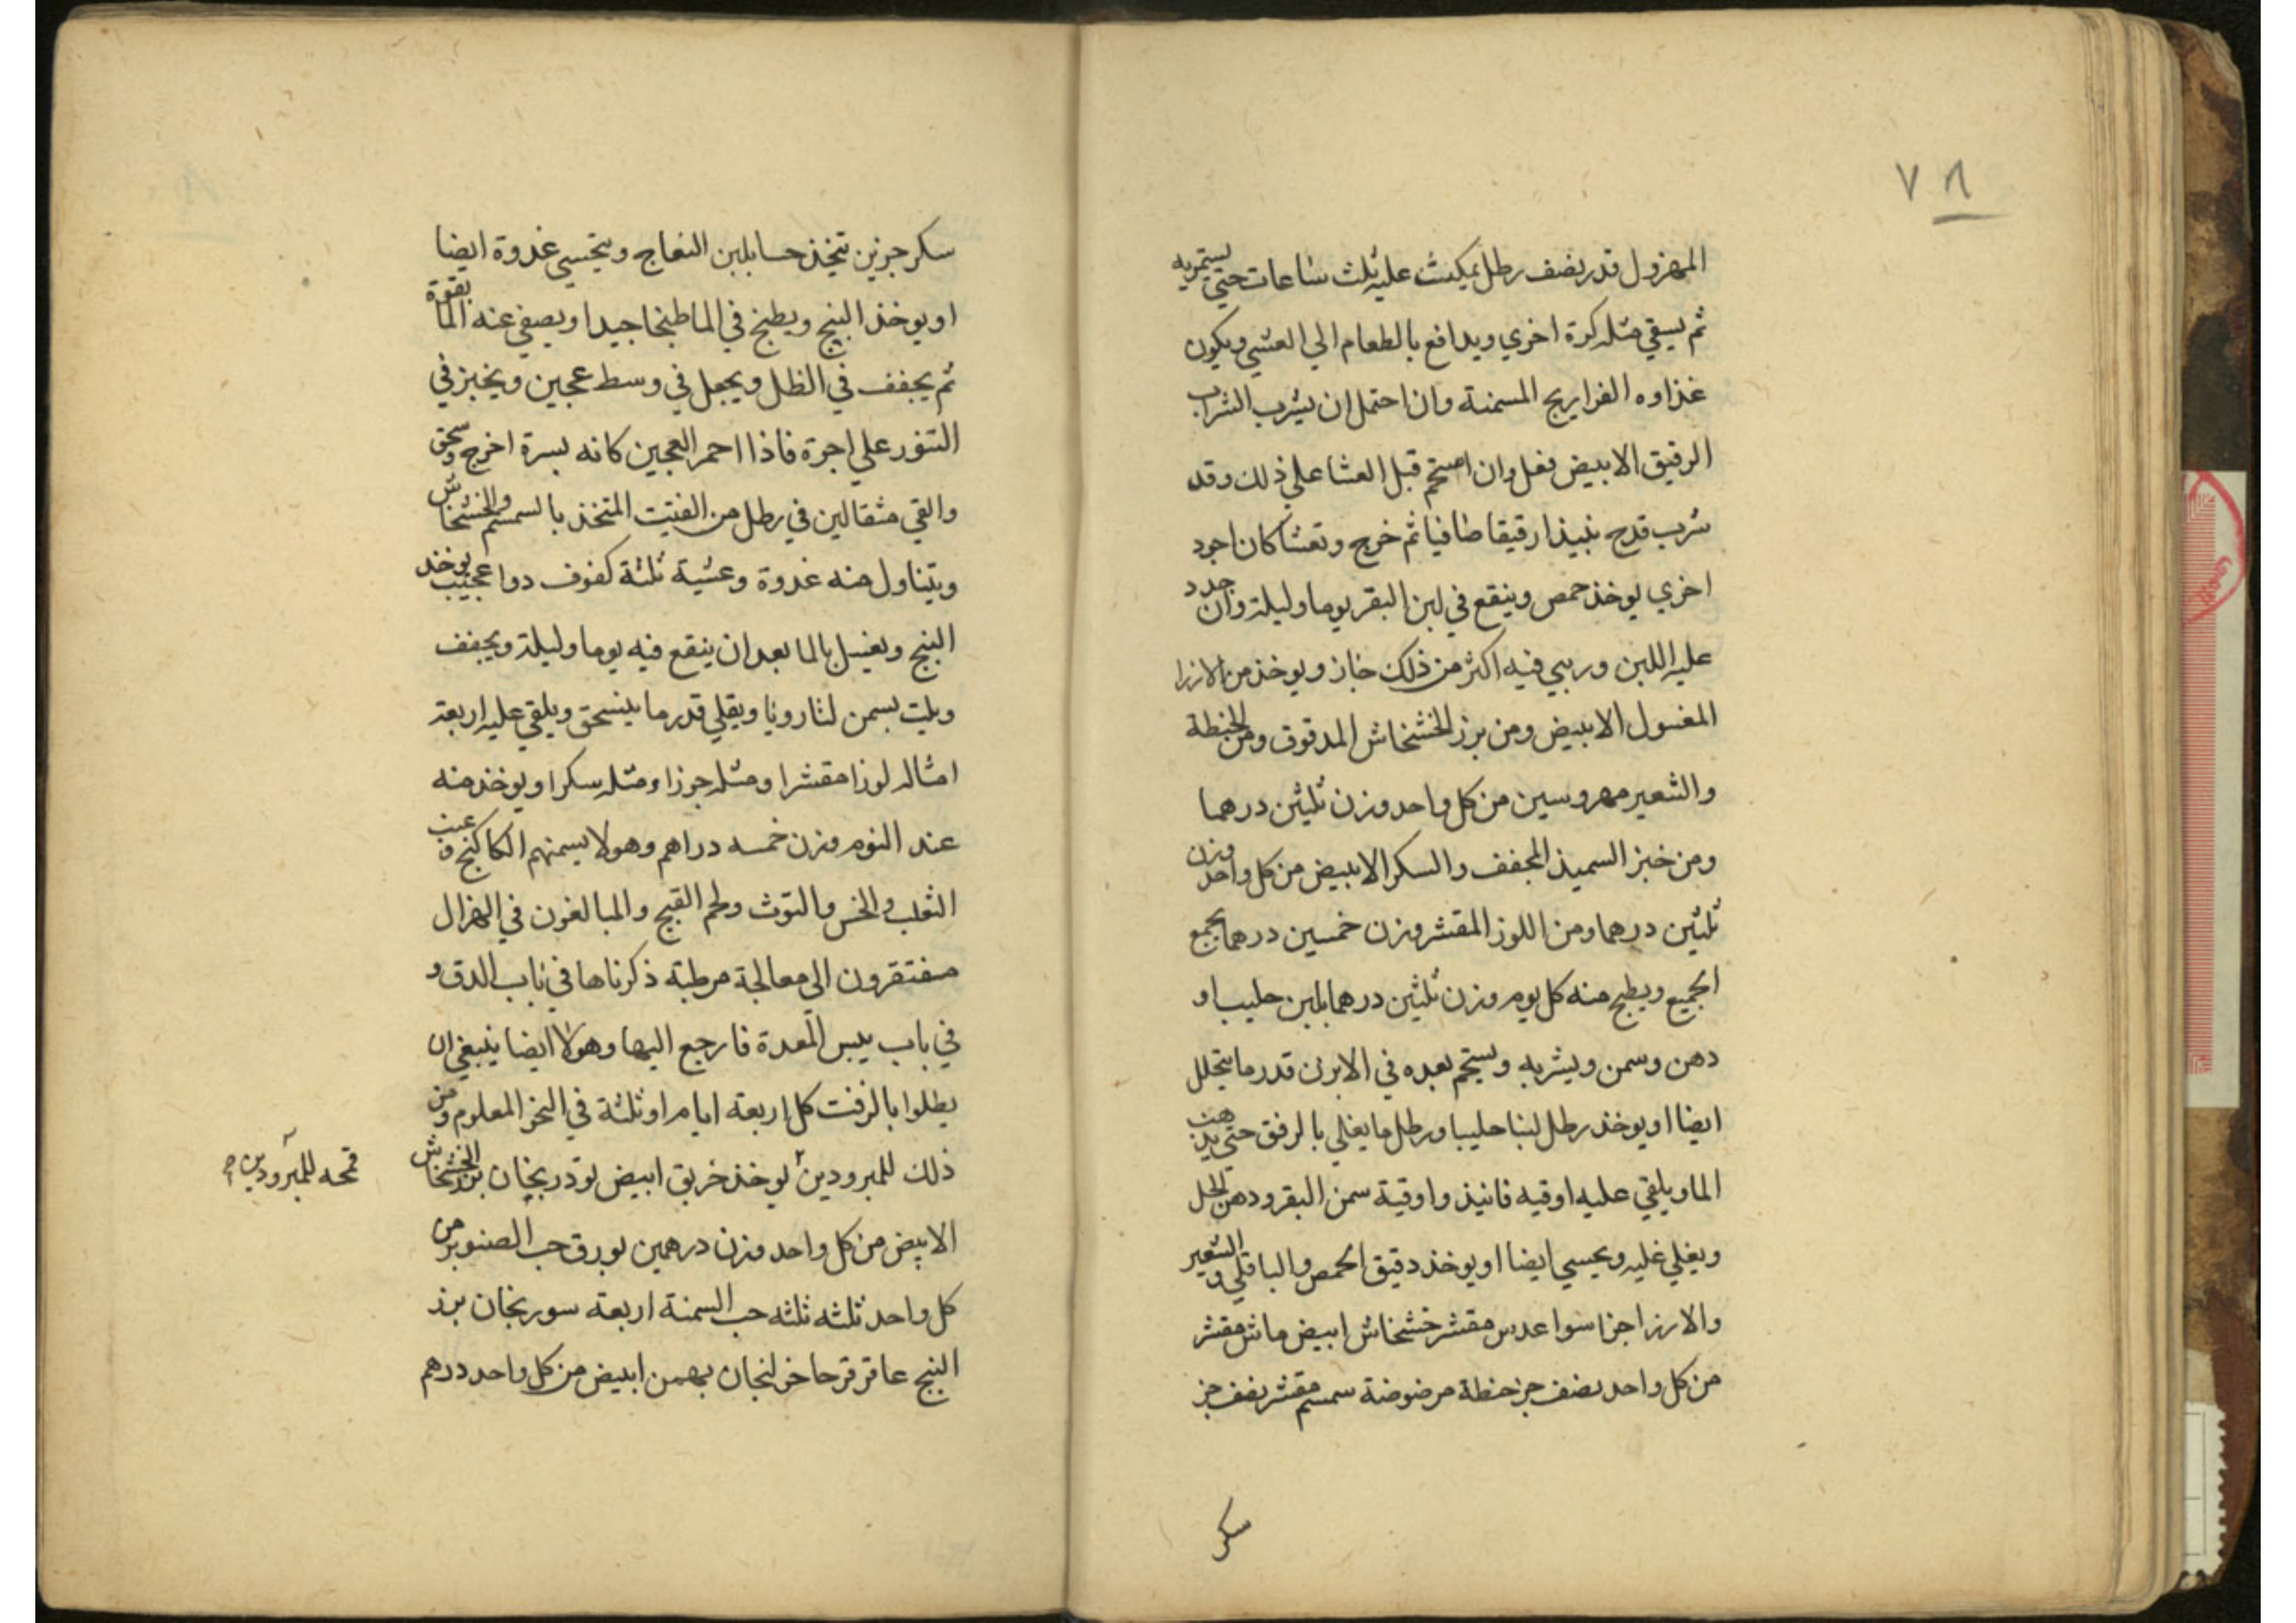 ٧٨
المهزول قدر نصف رطل يمكث عليه ثلث ساعات حتي يستمريه
ثم يسقي مثله كرة اخري ويدافع بالطعام الي العشي ويكون
غذاوه الفراريج المسمنة وان احتمل ان يشرب الشراب
الرقيق الابيض فعل وان استحم قبل العشا علي ذلك وقد
شرب قدح نبيذا رقيقا صافيا ثم خرج وتعشا كان اجود
اخري يوخذ حمص وينقع في لبن البقر يوما وليلة وان جدد
عليه اللبن وربي فيه اكثر من ذلك جاز ويوخذ من الارز
المغسول الابيض ومن بزر الخشخاش المدقوق ومن الحنطة
والشعير مهروسين من كل واحد وزن ثلثين درهما
ومن خبز السميذ المجفف والسكر الابيض من كل واحد وزن
ثلثين درهما ومن اللوز المقشر وزن خمسين درهما يجمع
الجميع ويطبخ منه كل يوم وزن ثلثين درهما بلبن حليب او
دهن وسمن ويشربه ويستحم بعده في الابزن قدر ما يتحلل
ايضا او يوخذ رطل لبنا حليبا ورطل ما يغلي بالرفق حتي يذهب
الما ويلقي عليه اوقيه فانيذ واوقية سمن البقر ودهن الحل
ويغلي غليه ويحسي ايضا او يوخذ دقيق الحمص والباقلي والشعير
والارز اجزا سوا عدس مقشر خشخاش ابيض ماش مقشر
من كل واحد نصف جز حنطة مرضوضة سمسم مقشر نصف جز
سكر
سكر جزين تيخذ حسا بلبن النعاج ويتحسي غدوة ايضا
او يوخذ البنج ويطبخ في الما طبخا جيدا ويصفي عنه الما بقوة
ثم يجفف في الظل ويجعل في وسط عجين ويخبز في
التنور علي اجرة فاذا احمر العجين كانه بسرة اخرج وسحق
والقي مثقالين في رطل من الفتيت المتخذ بالسمسم والخشخاش
ويتناول منه غدوة وعشية ثلثة كفوف دوا عجيب يوخذ
البنج ويغسل بالما بعد ان ينقع فيه يوما وليلة ويجفف
ويلت بسمن لتا رويا ويقلي قدر ما ينسحق ويلقي عليه اربعة
امثاله لوزا مقشرا ومثله جوزا ومثله سكرا ويوخذ منه
عند النوم وزن خمسه دراهم وهولا يسمنهم الكاكنج وعنب
الثعلب والخس والتوث ولحم القبج والمبالغون في الهزال
مفتقرون الي معالجة مرطبة ذكرناها في باب الدق و
في باب يبس المعدة فارجع اليها وهولا ايضا ينبغي ان
يطلوا بالزفت كل اربعة ايام او ثلثة في النحو المعلوم ومن
ذلك للمبرودين يوخذ خربق ابيض بزر الخشخاش
الابيض من كل واحد وزن درهمين بورق حب الصنوبر من
كل واحد ثلثه ثلثه حب السمنة اربعة سورنجان بزر
البنج عاقر قرحا خولنجان بهمن ابيض من كل واحد درهم
قمحه للمبرودين